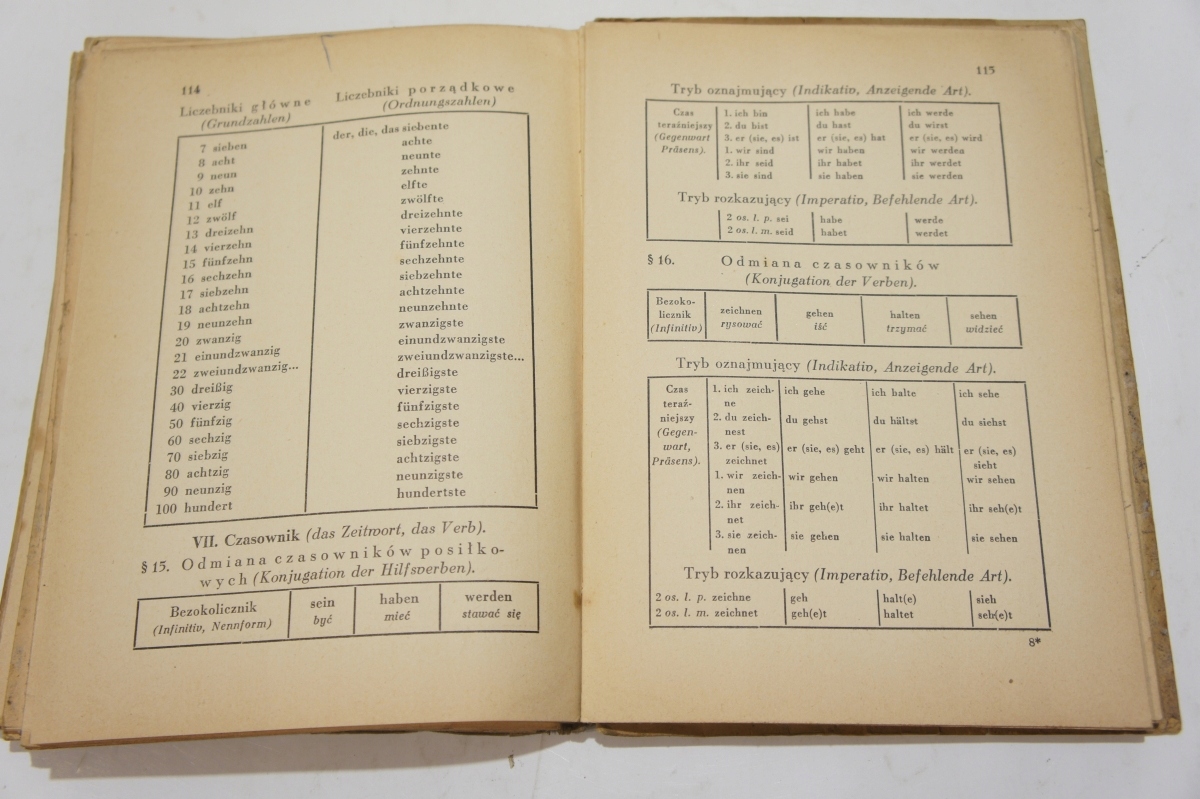 114
Liczebniki główne Liczebniki porządkowe
(Grundzahlen) (Ordnungszahlen)
7 sieben der, die, das siebente
8 acht achte
9 neun neunte
10 zehn zehnte
11 elf elfte
12 zwölf zwölfte
13 dreizehn dreizehnte
14 vierzehn vierzehnte
15 fünfzehn fünfzehnte
16 sechzehn sechzehnte
17 siebzehn siebzehnte
18 achtzehn achtzehnte
19 neunzehn neunzehnte
20 zwanzig zwanzigste
21 einundzwanzig einundzwanzigste
22 zweiundzwanzig... zweiundzwanzigste...
30 dreißig dreißigste
40 vierzig vierzigste
50 fünfzig fünfzigste
60 sechzig sechzigste
70 siebzig siebzigste
80 achtzig achtzigste
90 neunzig neunzigste
100 hundert hundertste
VII. Czasownik (das Zeitwort, das Verb).
§ 15. Odmiana czasowników posiłko-
wych (Konjugation der Hilfsverben).
Bezokolicznik sein haben werden
(Infinitiv, Nennform) być mieć stawać się
115
Tryb oznajmujący (Indikativ, Anzeigende Art).
Czas 1. ich bin ich habe ich werde
teraźniejszy 2. du bist du hast du wirst
(Gegenwart 3. er (sie, es) ist er (sie, es) hat er (sie, es) wird
Präsens). 1. wir sind wir haben wir werden
2. ihr seid ihr habet ihr werdet
3. sie sind sie haben sie werden
Tryb rozkazujący (Imperativ, Befehlende Art).
2 os. l. p. sei habe werde
2 os. l. m. seid habet werdet
§ 16. Odmiana czasowników
(Konjugation der Verben).
Bezoko-
licznik zeichnen gehen halten sehen
(Infinitiv) rysować iść trzymać widzieć
Tryb oznajmujący (Indikativ, Anzeigende Art).
Czas 1. ich zeich- ich gehe ich halte ich sehe
teraź- ne
niejszy 2. du zeich- du gehst du hältst du siehst
(Gegen- nest
wart, 3. er (sie, es) er (sie, es) geht er (sie, es) hält er (sie, es)
Präsens). zeichnet sieht
1. wir zeich- wir gehen wir halten wir sehen
nen
2. ihr zeich- ihr geh(e)t ihr haltet ihr seh(e)t
net
3. sie zeich- sie gehen sie halten sie sehen
nen
Tryb rozkazujący (Imperativ, Befehlende Art).
2 os. l. p. zeichne geh halt(e) sieh
2 os. l. m. zeichnet geh(e)t haltet seh(e)t
8*